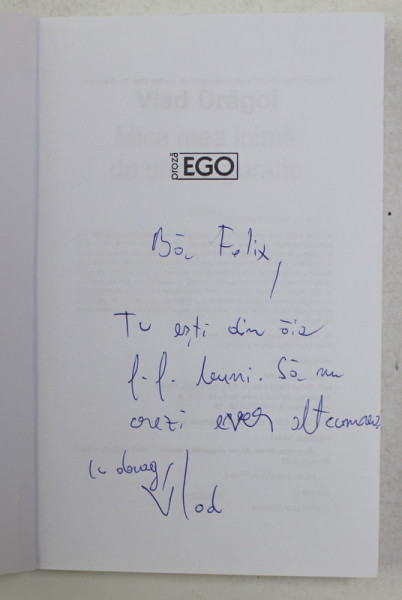 Vlad Drăgoi
proză EGO
Bă Felix,
Tu ești din ăia
f. f. buni. Să nu
crezi ever altcumva
Cu drag,
Vlad